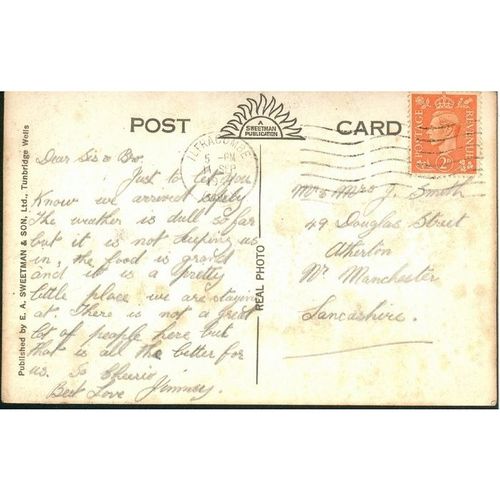 POST CARD
A
SWEETMAN
PUBLICATION
ILFRACOMBE
5 - PM
SEP
POSTAGE REVENUE
2D
Published by E. A. SWEETMAN & SON, Ltd., Tunbridge Wells
REAL PHOTO
Dear Sis & Bro.
Just to let you
Know we arrived safely
The weather is dull so far
but it is not keeping us
in, the food is grand
and it is a pretty
little place we are staying
at. There is not a great
lot of people here but
that is all the better for
us. So Cheerio
Best Love Jimmy
Mr & Mrs J. Smith
49 Douglas Street
Atherton
Nr Manchester
Lancashire.